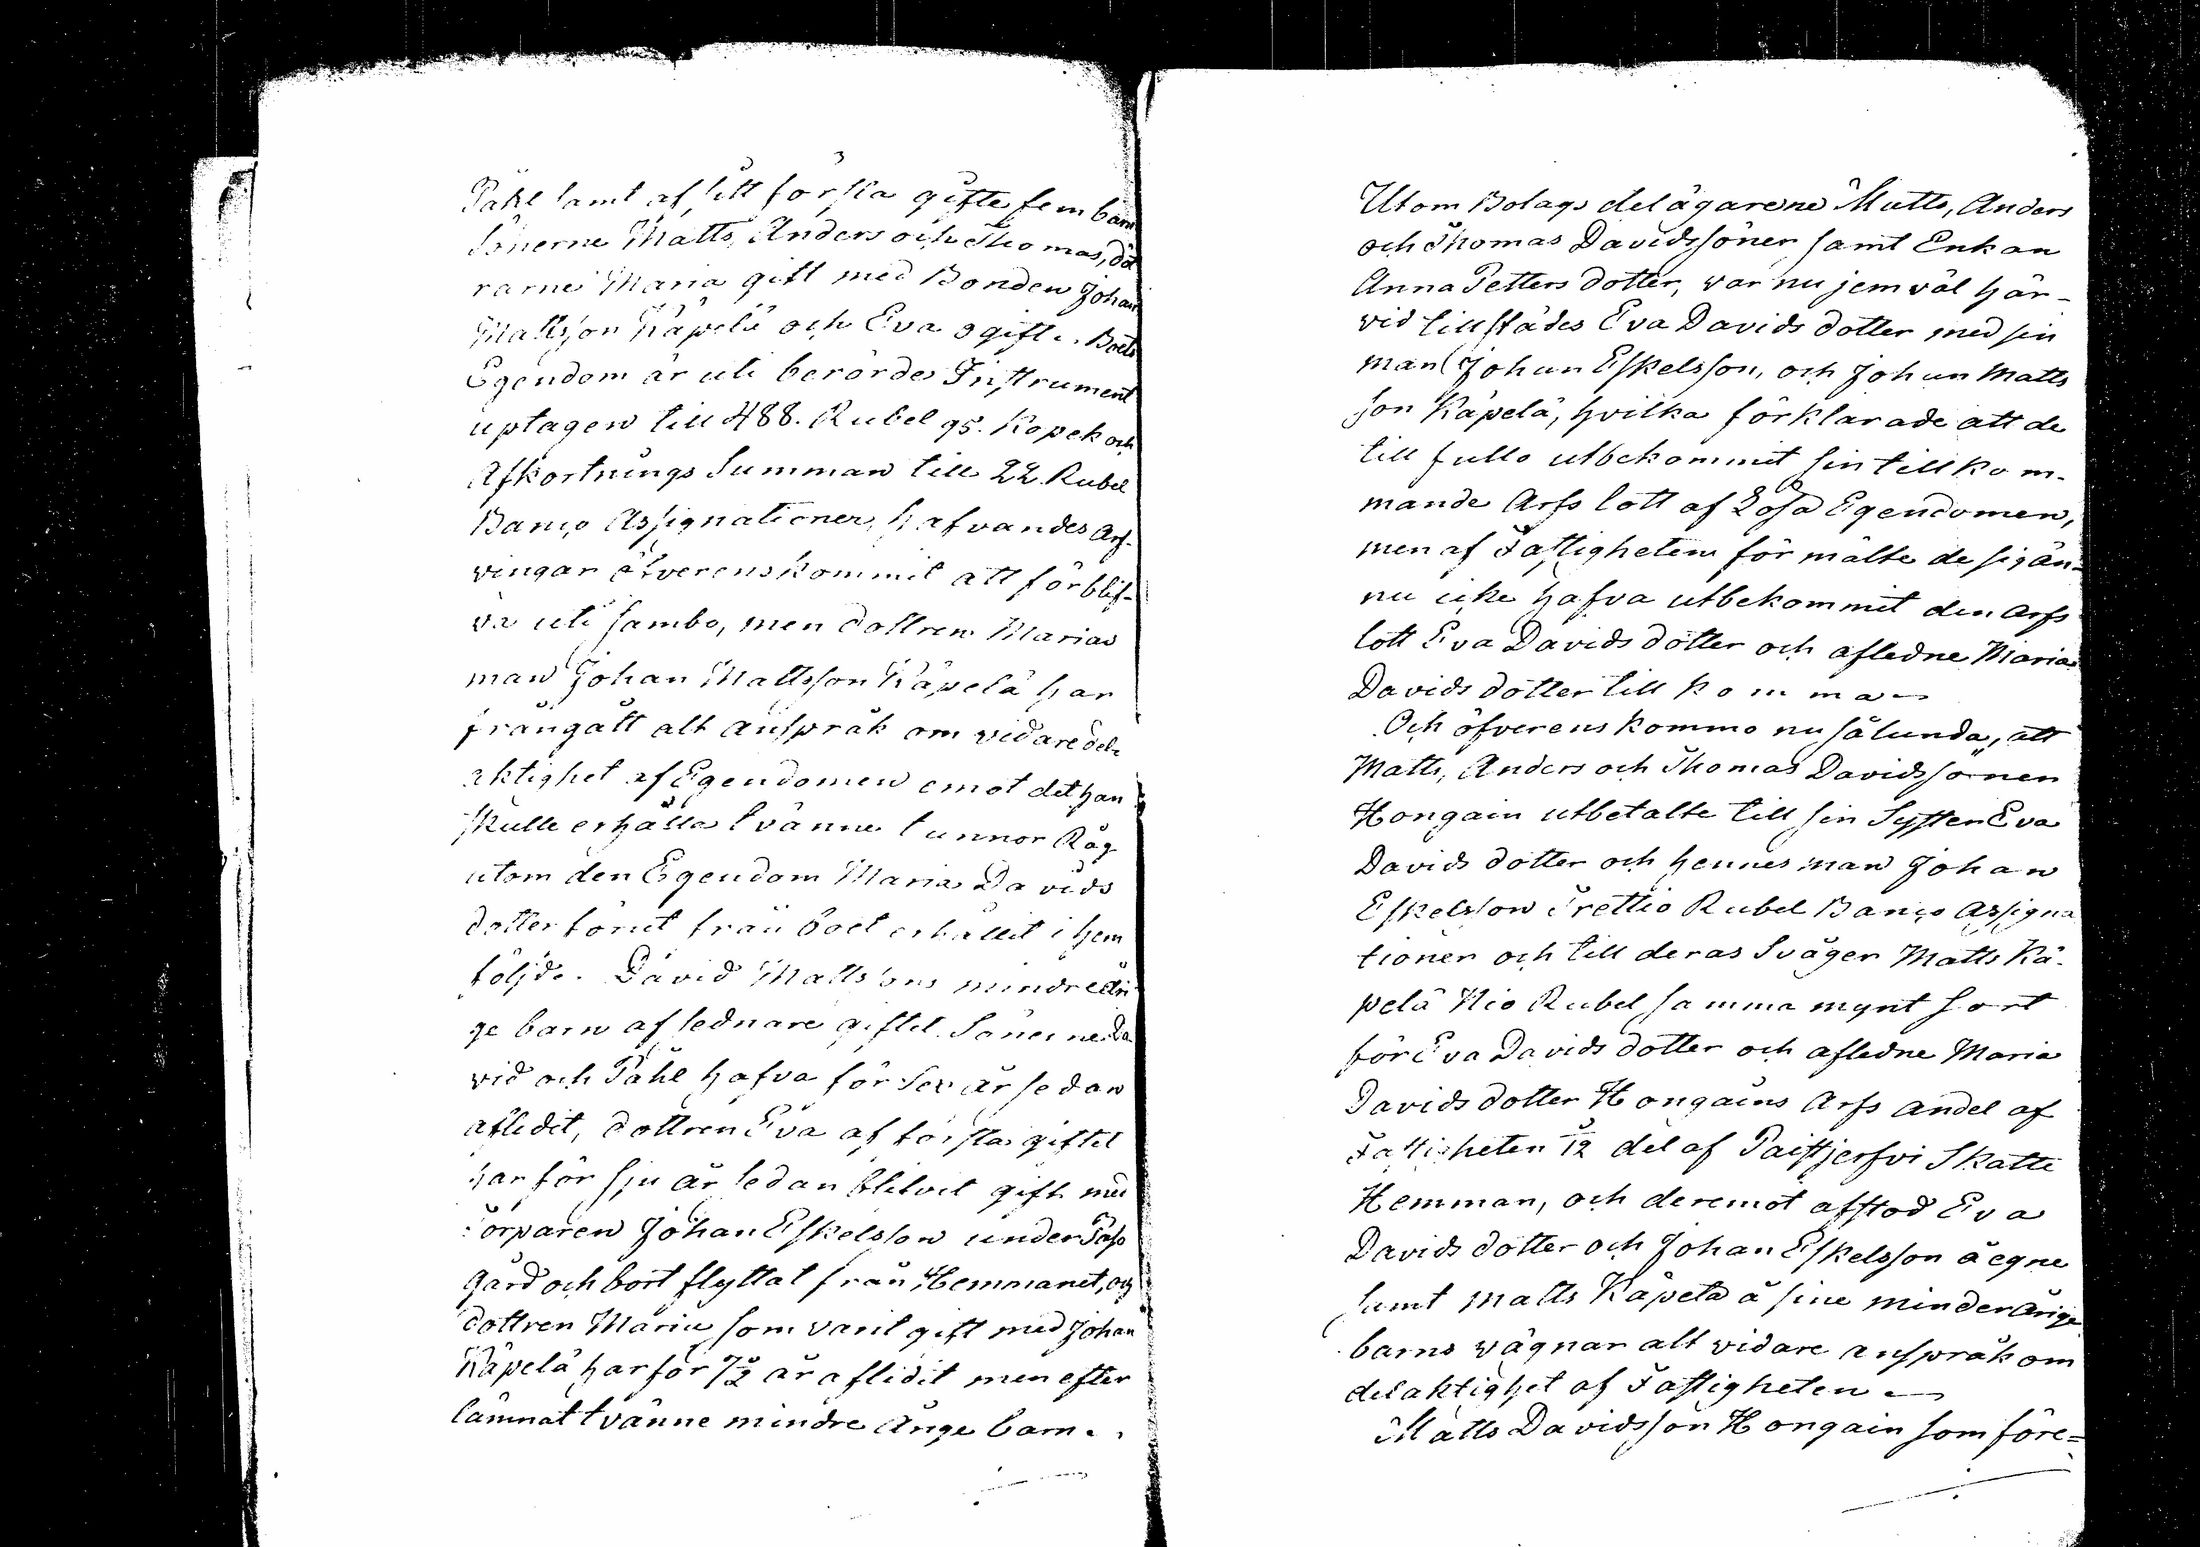 Påhl samt af sitt första gifte fem barn
Sönerne Matts, Anders och Thomas, döt
rarne Maria gift med Bonden Johan
Mattsson Käpelä och Eva ogift. Boets
Egendom är uti berörde Instrument
uptagen till 488. Rubel 95. Kopek och
Afkortnings Summan till 22. Rubel
Banco Assignationer, hafvandes Arf-
vingar öfverenskommit att förblif-
va uti sambo, men dottren Marias
man Johan Mattsson Käpelä har
frångått alt anspråk om vidare del-
aktighet af Egendomen emot det han
skulle erhålla tvänne tunnor Råg
utom den Egendom Maria Davids
dotter förut från boet erhållit i hem
följd. David Mattssons mindreåri
ge barn af sednare giftet Sönerne Da
vid och Påhl hafva för Sex år sedan
aflidit, dottren Eva af första giftet
har för sju år sedan blifvit gift med
Torparen Johan Eskelsson under Pass
gård och bort flyttat från Hemmanet, och
dottren Maria som varit gift med Johan
Käpelä har för 7½ år aflidit men efter
lämnat tvänne mindre Årige barn.
Utom Bolags delägarene Matts, Anders
och Thomas Davidssöner samt Enkan
Anna Petters dotter, var nu jemväl här-
vid tillstädes Eva Davids dotter med sin
man Johan Eskelsson, och Johan Matts
son Käpelä, hvilka förklarade att de
till fullo utbekommit sin tillkom-
mande Arfs lott af Lösa Egendomen,
men af Fastigheten förmälte de sig än-
nu icke hafva utbekommit den Arfs
lott Eva Davids dotter och afledne Maria
Davids dotter tillkomma
Och öfverenskommo nu sålunda, att
Matts, Anders och Thomas Davidssönen
Hongain utbetalte till sin Syster Eva
Davids dotter och hennes man Johan
Eskelsson Trettio Rubel Banco Assigna
tioner och till deras Svåger Matts Kä-
pelä Nio Rubel samma mynt sort
för Eva Davids dotter och afledne Maria
Davids dotter Hongains Arfs andel af
Fastigheten 1/12 del af Paistjerfvi Skatte
Hemman, och deremot afstod Eva
Davids dotter och Johan Eskelsson å egne
samt Matts Käpelä å sine minderårige
barns vägnar alt vidare anspråk om
delaktighet af Fastigheten
Matts Davidsson Hongain som före=